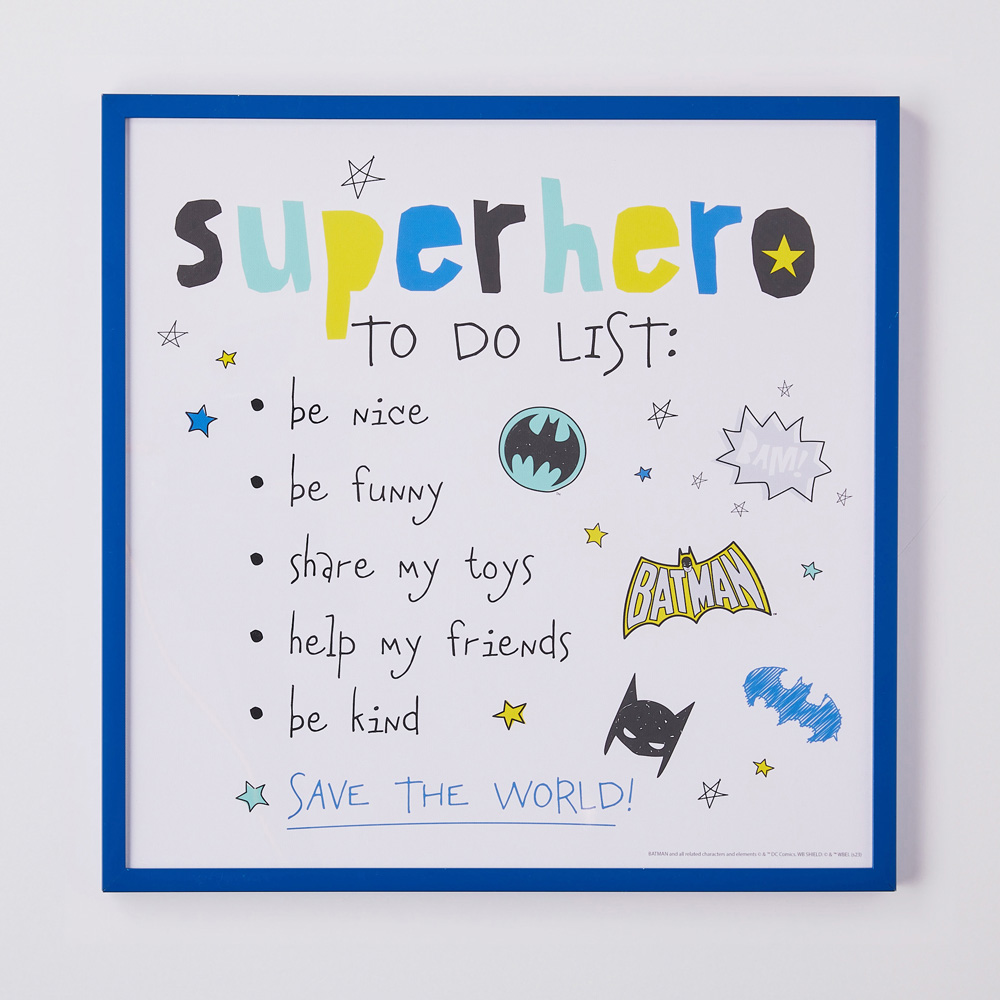 superhero
TO DO LIST:
• be nice
• be funny
BAM!
• share my toys
BATMAN
• help my friends
• be kind
SAVE THE WORLD!
BATMAN and all related characters and elements © & ™ DC Comics. WB SHIELD: © & ™ WBEI. (s23)